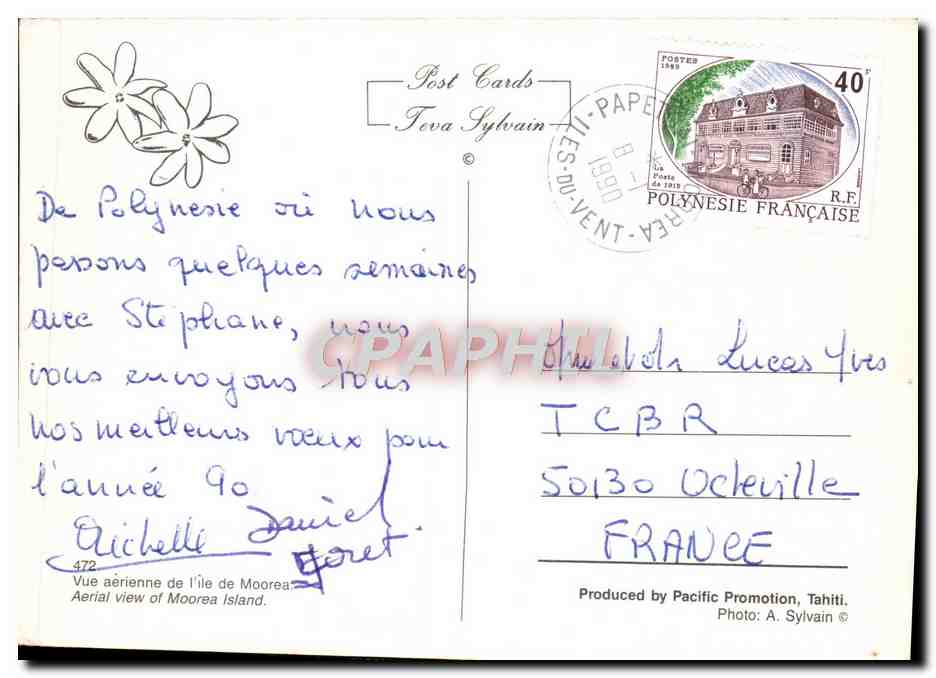 Post Cards
Teva Sylvain
©
POSTES
1989
40F
La
Poste
de 1915
R.F.
POLYNESIE FRANÇAISE
ILES-DU-VENT
8
1990
De Polynesie où nous
passons quelques semaines
avec Stéphane, nous
vous envoyons tous
nos meilleurs vœux pour
l'année 90
Michelle Daniel
472
Vue aérienne de l'île de Moorea.
Aerial view of Moorea Island.
CPAPHIL
Lucas Yves
TCBR
50130 Octeville
FRANCE
Produced by Pacific Promotion, Tahiti.
Photo: A. Sylvain ©